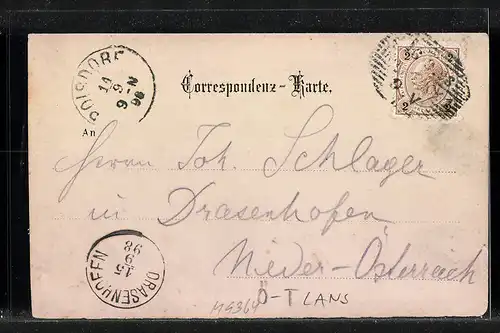 POISDORF
14
9
9-N
98
Correspondenz - Karte.
An
Herrn Joh. Schlager
in Drasenhofen
Nieder-Österreich
DRASENHOFEN
15
9
98
Ö-T LANS